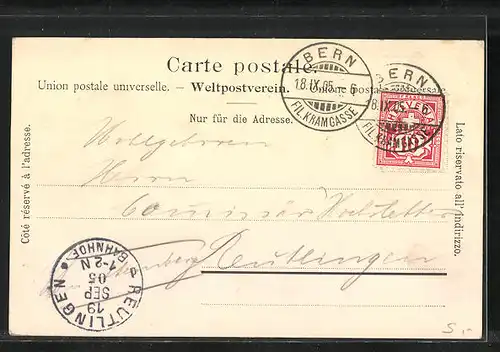 Carte postale.
Union postale universelle. — Weltpostverein. — Unione postale universale.
Nur für die Adresse.
Côté réservé à l'adresse.
Lato riservato all'indirizzo.
BERN
18.IX.05. 6
FIL.KRAMGASSE
BERN
18.IX.05. 6
FIL.KRAMGASSE
HELVETIA
10
Wohlgeboren
Herrn
Hochstetter
Reutlingen
REUTLINGEN
19
SEP
05
1-2N
BAHNHOF
S,-